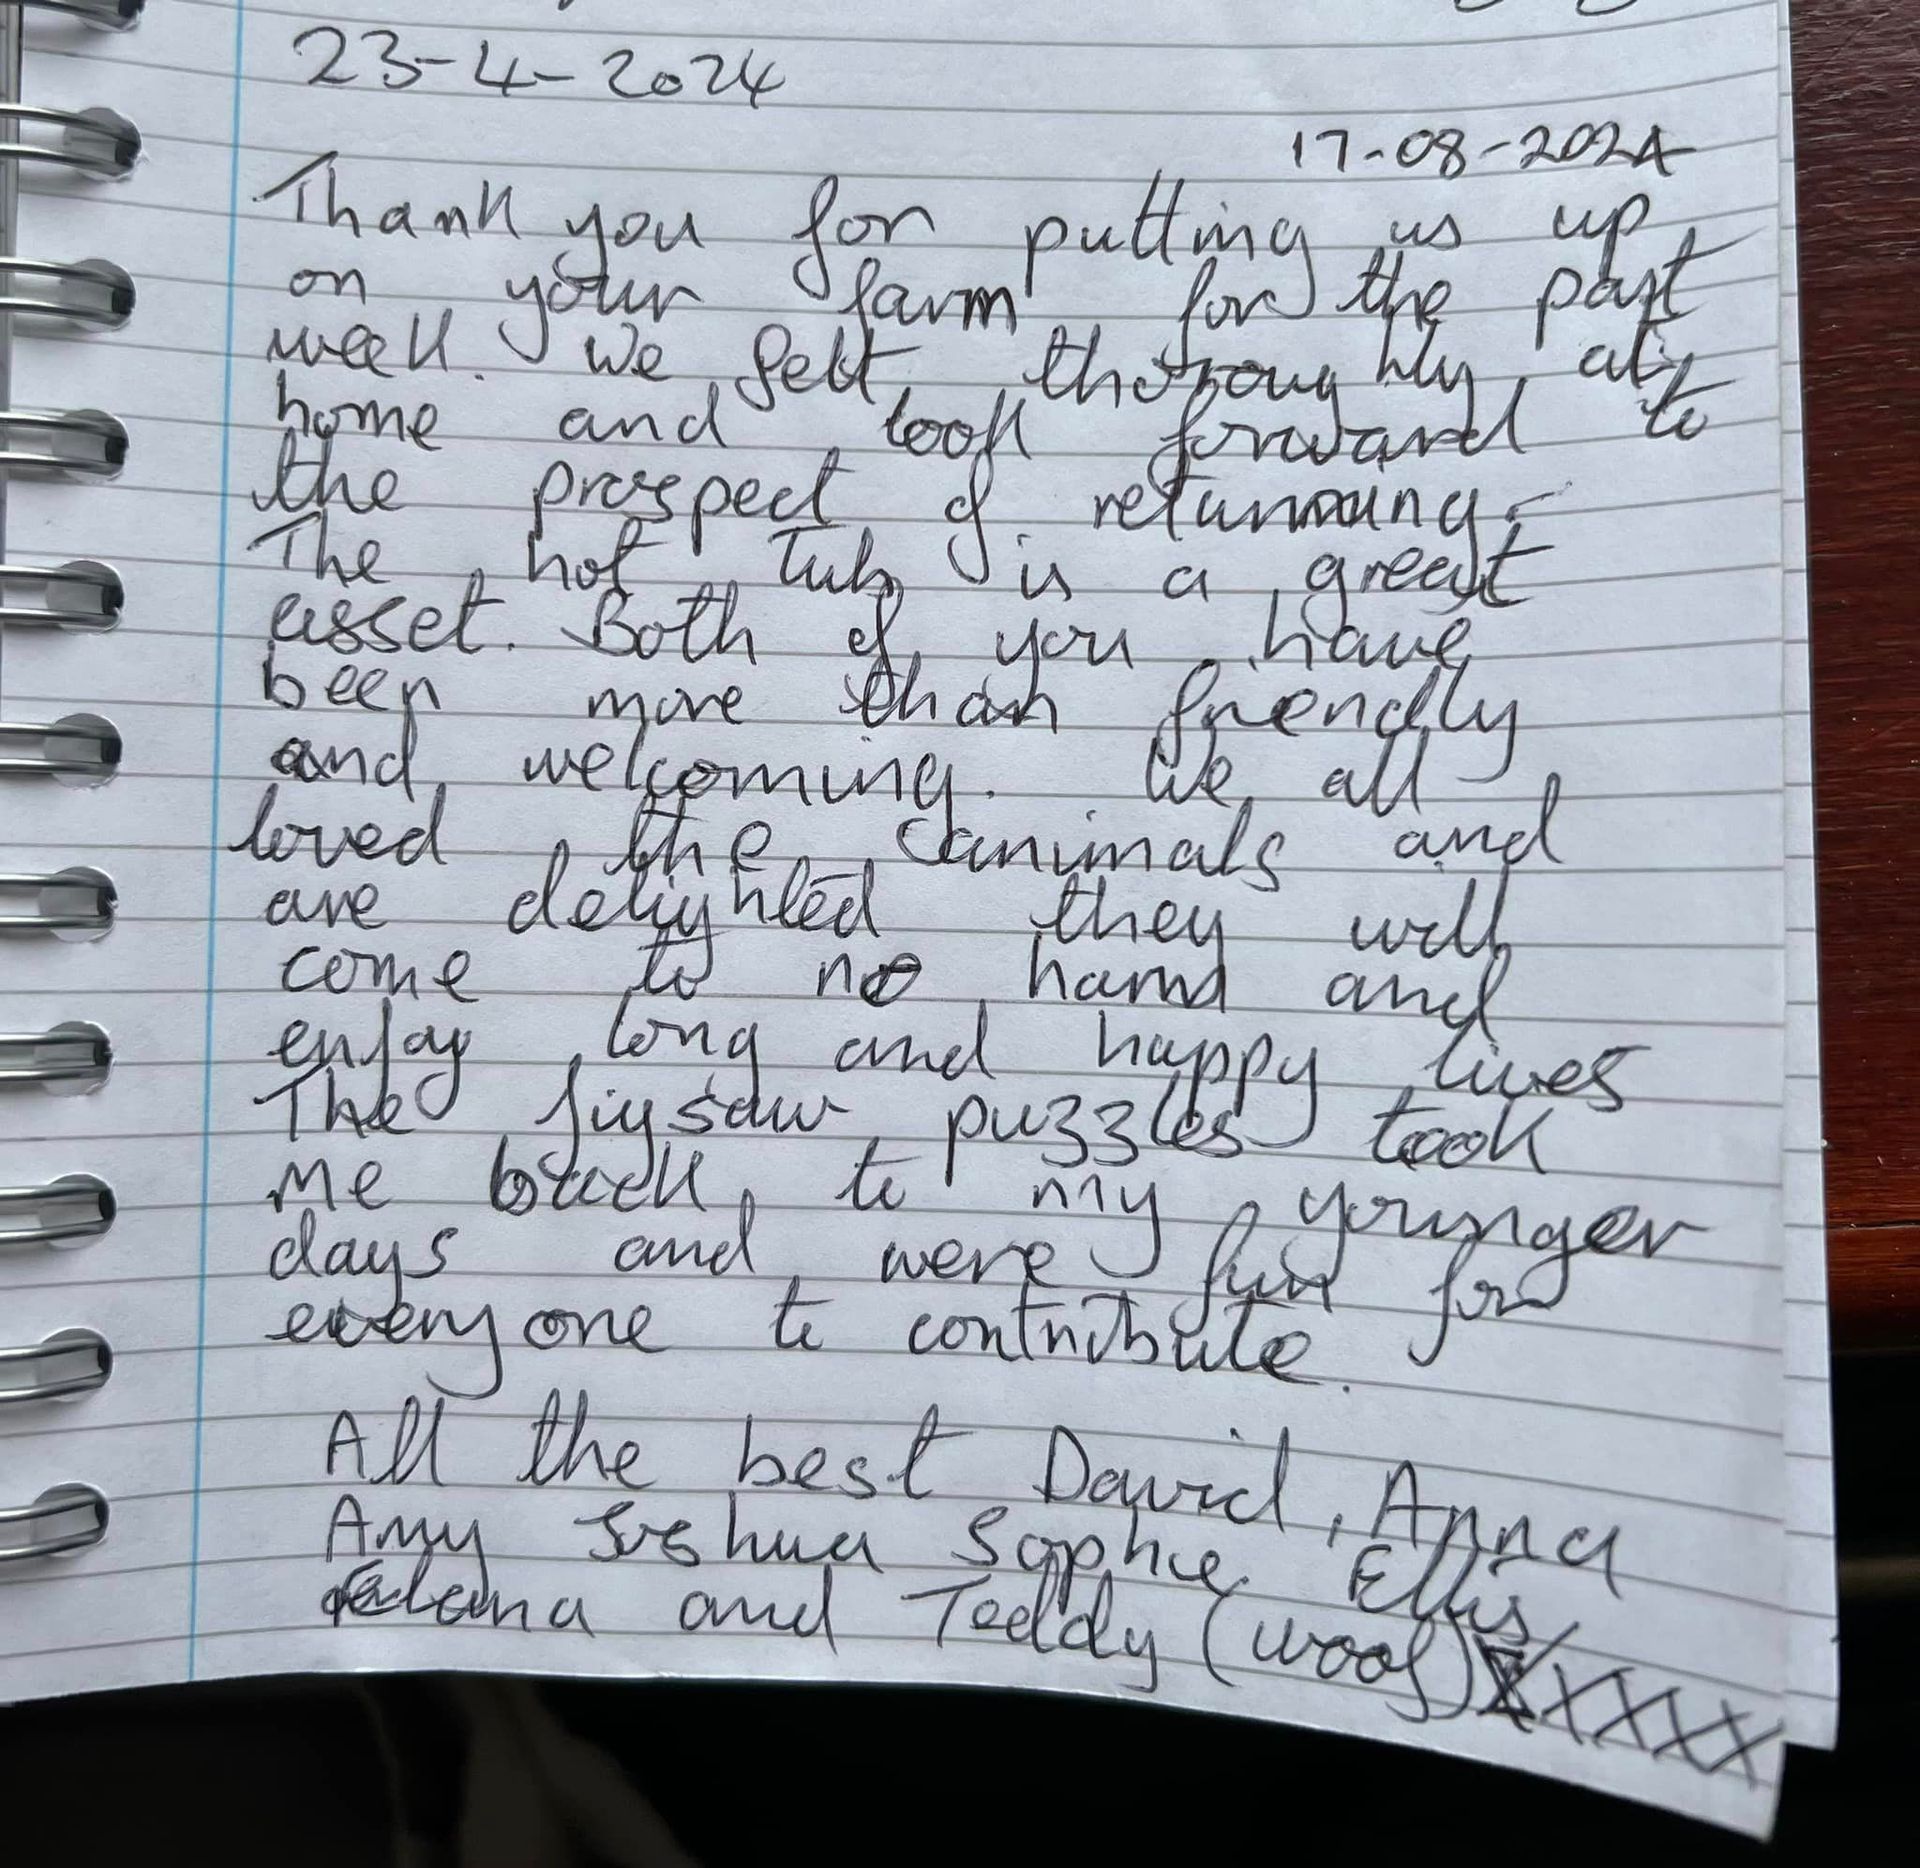 23-4-2024
17-08-2024
Thank you for putting us up
on your farm for the past
week. We felt thoroughly at
home and look forward to
the prospect of returning.
The hot tub is a great
asset. Both of you have
been more than friendly
and welcoming. We all
loved the animals and
are delighted they will
come to no harm and
enjoy long and happy lives
The jigsaw puzzles took
me back to my younger
days and were fun for
everyone to contribute.
All the best David, Anna
Amy Joshua Sophie Ellis
and Teddy (woof) XXXXX